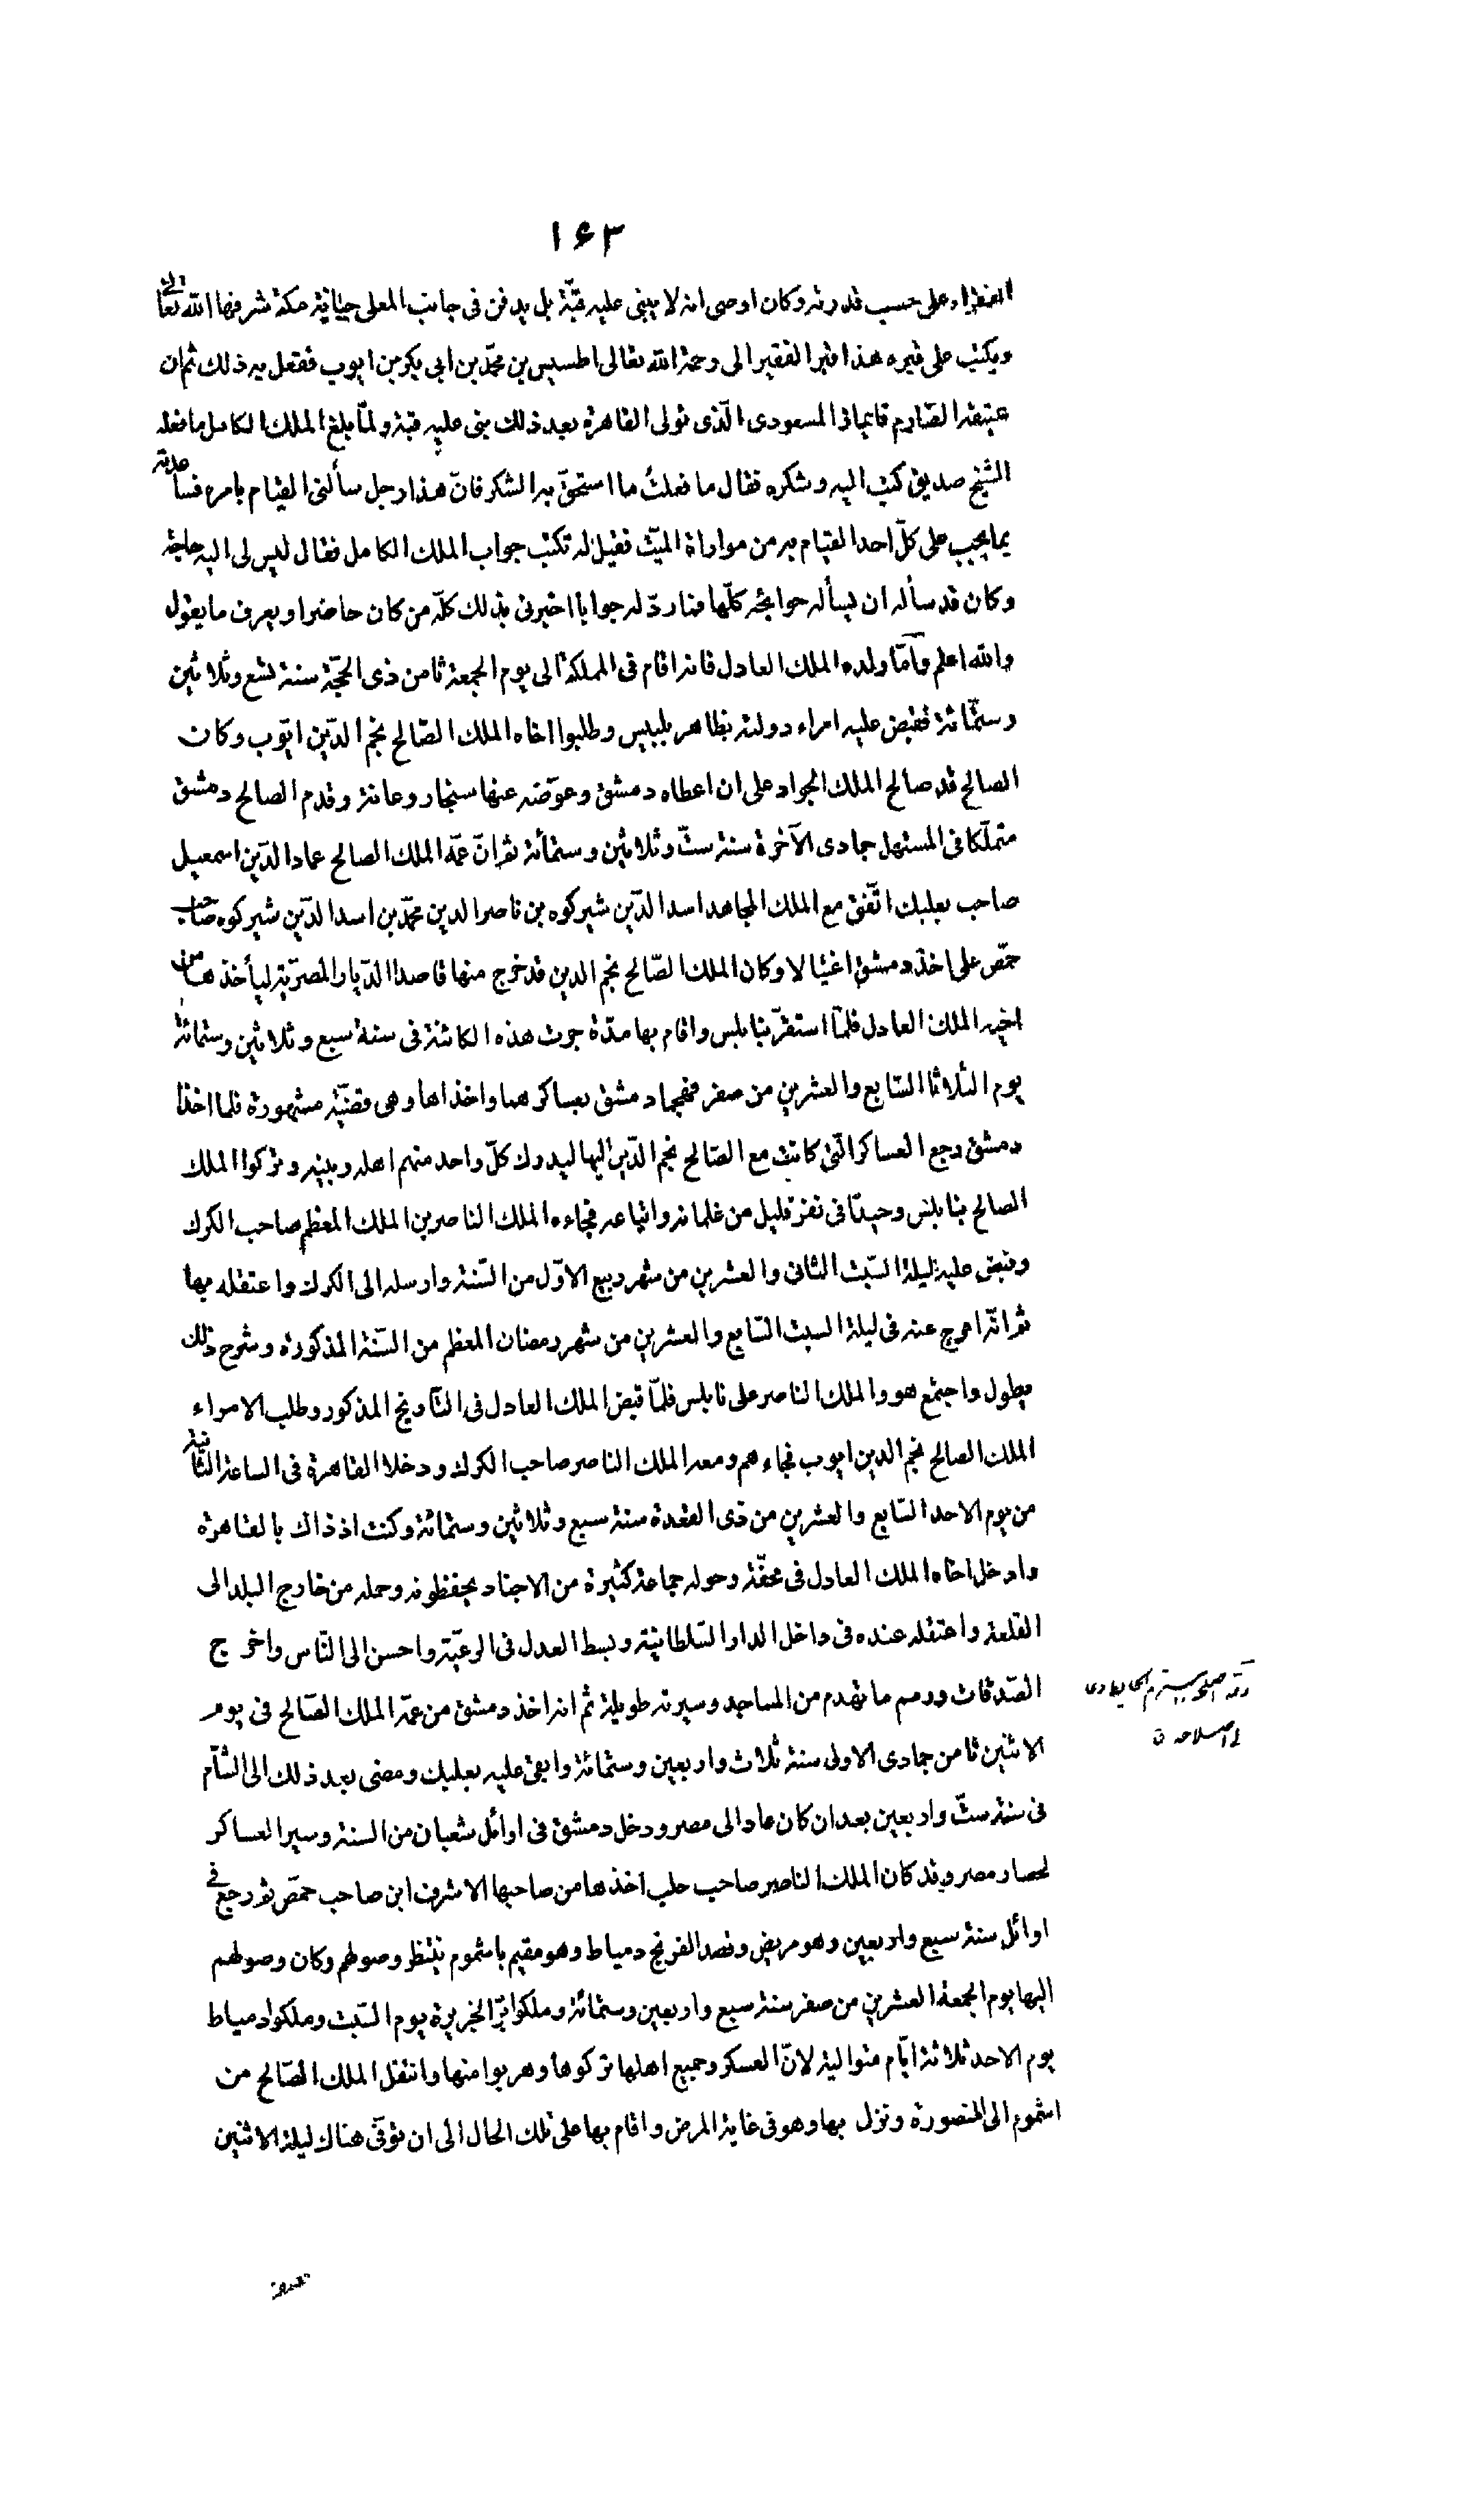 ۱۶۳
الفقراء على حسب قدرته وكان اوصى انه لا يبنى عليه قبّة بل يدفن فى جانب المعلى جبّانة مكة شرفها الله تعالى
ويكتب على قبره هذا قبر الفقير الى رحمة الله تعالى اطسيس بن محمّد بن ابى بكر بن ايوب ففعل به ذلك ثم ان
عتيقه الصّارم قايماز المسعودى الّذى تولى القاهرة بعد ذلك بنى عليه قبة ولمّا بلغ الملك الكامل ما فعله
الشيخ صديق كتب اليه وشكره فقال ما فعلت ما استحقّ به الشكر فانّ هذا رجل سألنى القيام بامره فساعدته
بما يجب على كلّ احد القيام به من مواراة الميّت فقيل له تكتب جواب الملك الكامل فقال ليس لى اليه حاجة
وكان قد سأله ان يسأله حوائجه كلّها فما ردّ له جوابا اخبرنى بذلك كلّه من كان حاضرا ويعرف ما يقول
والله اعلم وامّا ولده الملك العادل فانه اقام فى المملكة الى يوم الجمعة ثامن ذى الحجّة سنة تسع وثلاثين
وستّمائة فقبض عليه امراء دولته بظاهر بلبيس وطلبوا اخاه الملك الصّالح نجم الدّين ايّوب وكان
الصالح قد صالح الملك الجواد على ان اعطاه دمشق وعوّضه عنها سنجار وعانة وقدم الصالح دمشق
متملّكا فى المستهل جمادى الآخرة سنة ستّ وثلاثين وستمائة ثم انّ عمّه الملك الصالح عماد الدّين اسمعيل
صاحب بعلبك اتّفق مع الملك المجاهد اسد الدّين شيركوه بن ناصر الدين محمّد بن اسد الدّين شيركوه صاحب
حمّص على اخذ دمشق اغتيالا وكان الملك الصّالح نجم الدين قد خرج منها قاصدا الدّيار المصرّية ليأخذها من
اخيه الملك العادل فلمّا استقرّ بنابلس واقام بها مدّة جرت هذه الكائنة فى سنة سبع وثلاثين وستمائة
يوم الثلاثا السّابع والعشرين من صفر فهجما دمشق بعساكرهما واخذاها وهى قضيّة مشهورة فلما اخذا
دمشق رجع العساكر الّتى كانت مع الصّالح نجم الدّين اليها ليدرك كلّ واحد منهم اهله وبيته وتركوا الملك
الصالح بنابلس وحيدا فى نفر قليل من غلمانه واتباعه فجاءه الملك الناصر بن الملك المعظم صاحب الكرك
وقبض عليه ليلة السّبت الثانى والعشرين من شهر ربيع الاوّل من السّنة وارسله الى الكرك واعتقله بها
ثم انّه افرج عنه فى ليلة السبت السّابع والعشرين من شهر رمضان المعظم من السّنة المذكورة وشرح ذلك
يطول واجتمع هو والملك الناصر على نابلس فلمّا قبض الملك العادل فى التّاريخ المذكور وطلب الامراء
الملك الصالح نجم الدين ايوب فجاءهم ومعه الملك الناصر صاحب الكرك ودخلا القاهرة فى الساعة الثانية
من يوم الاحد السّابع والعشرين من ذى القعدة سنة سبع وثلاثين وستمائة وكنت اذ ذاك بالقاهرة
وادخل اخاه الملك العادل فى محفّة وحوله جماعة كثيرة من الاجناد يحفظونه وحمله من خارج البلد الى
القلعة واعتقله عنده فى داخل الدار السّلطانيّة وبسط العدل فى الرعيّة واحسن الى النّاس واخرج
الصّدقات ورمم ما تهدم من المساجد وسيرته طويلة ثم انه اخذ دمشق من عمّه الملك الصّالح فى يوم
الاثنين ثامن جمادى الاولى سنة ثلاث واربعين وستمائة وابقى عليه بعلبك ومضى بعد ذلك الى الشآم
فى سنة ستّ واربعين بعد ان كان عاد الى مصر ودخل دمشق فى اوائل شعبان من السنة وسير العساكر
لحصار مصر وقد كان الملك الناصر صاحب حلب اخذها من صاحبها الاشرف ابن صاحب حمّص ثم رجع فى
اوائل سنة سبع واربعين وهو مريض وقصد الفرنج دمياط وهو مقيم باشموم ينتظر وصولهم وكان وصولهم
اليها يوم الجمعة العشرين من صفر سنة سبع واربعين وستمائة وملكوا برّ الجزيرة يوم السّبت وملكوا دمياط
يوم الاحد ثلاثة ايّام متوالية لانّ العسكر وجميع اهلها تركوها وهربوا منها وانتقل الملك الصّالح من
اشموم الى المنصورة ونزل بها وهو فى غاية المرض واقام بها على تلك الحال الى ان توفّى هناك ليلة الاثنين